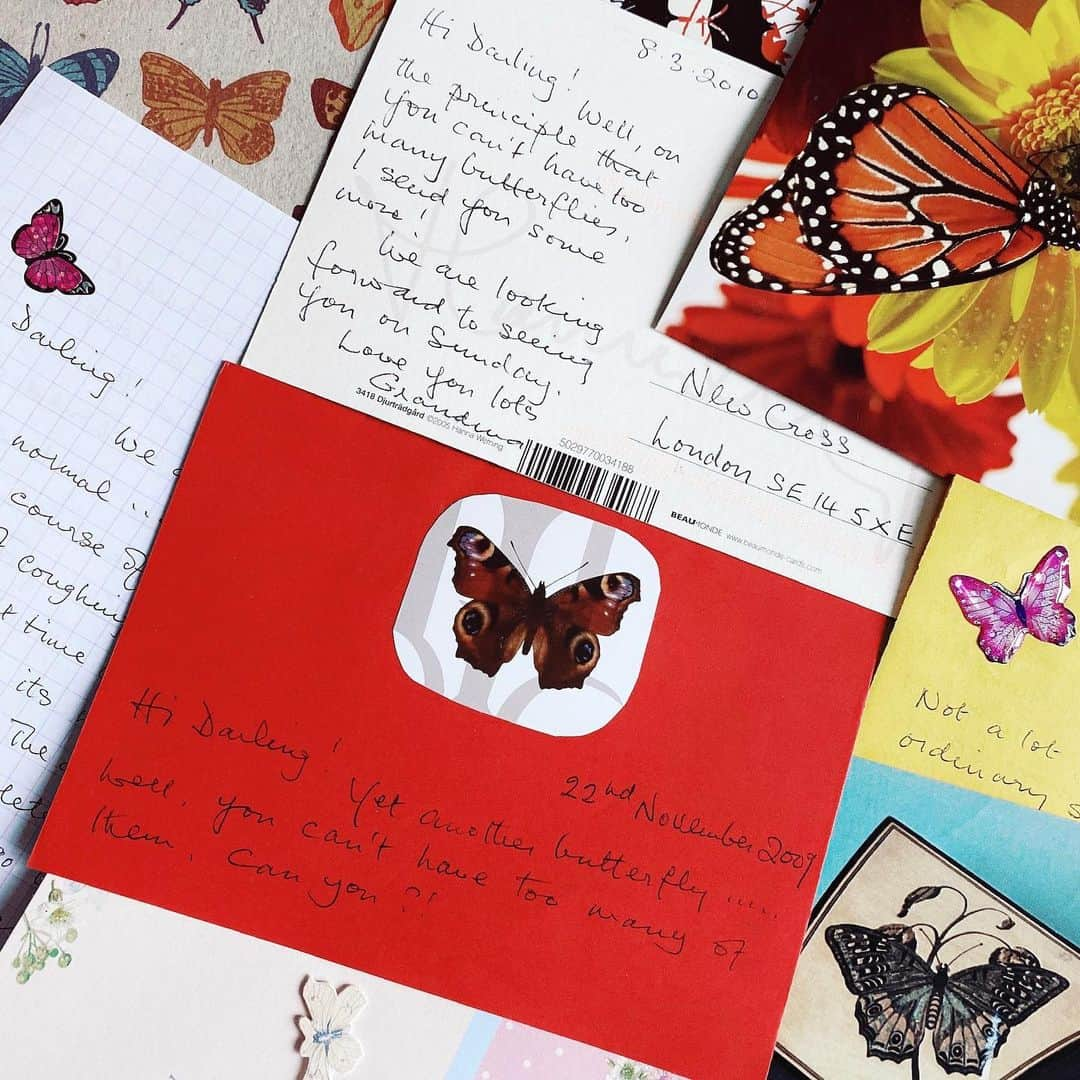 8.3.2010
Hi Darling! Well, on
the principle that
you can't have too
many butterflies,
I send you some
more!
We are looking
forward to seeing
you on Sunday.
Love you lots
Grandma
3418 Djurträdgård ©2005 Hanna Werning
5029770034188
BEAUMONDE www.beaumonde-cards.com
New Cross
London SE 14 5XE
Darling!
We
normal ...
course of
coughin
time
its
The
Hi Darling!
22nd November 2009
Yet another butterfly .....
well, you can't have too many of
them. Can you?!
Not a lot
ordinary s